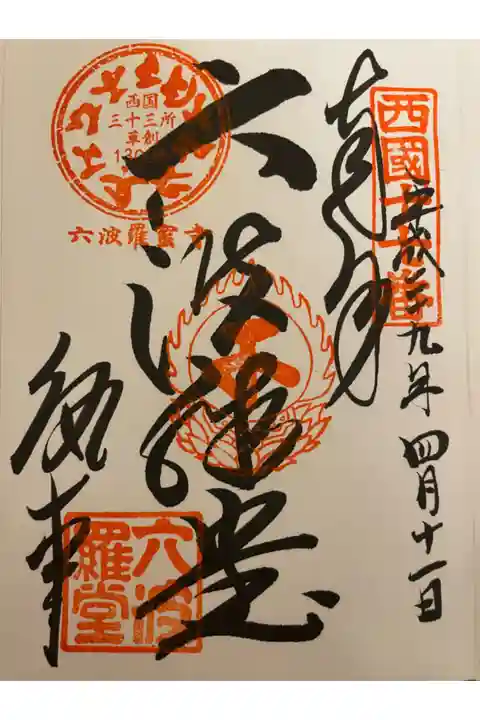 西國十七番
平成廿九年四月十一日
奉拝
六波羅堂
西国
三十三所
草創
六波羅蜜寺
六波
羅堂